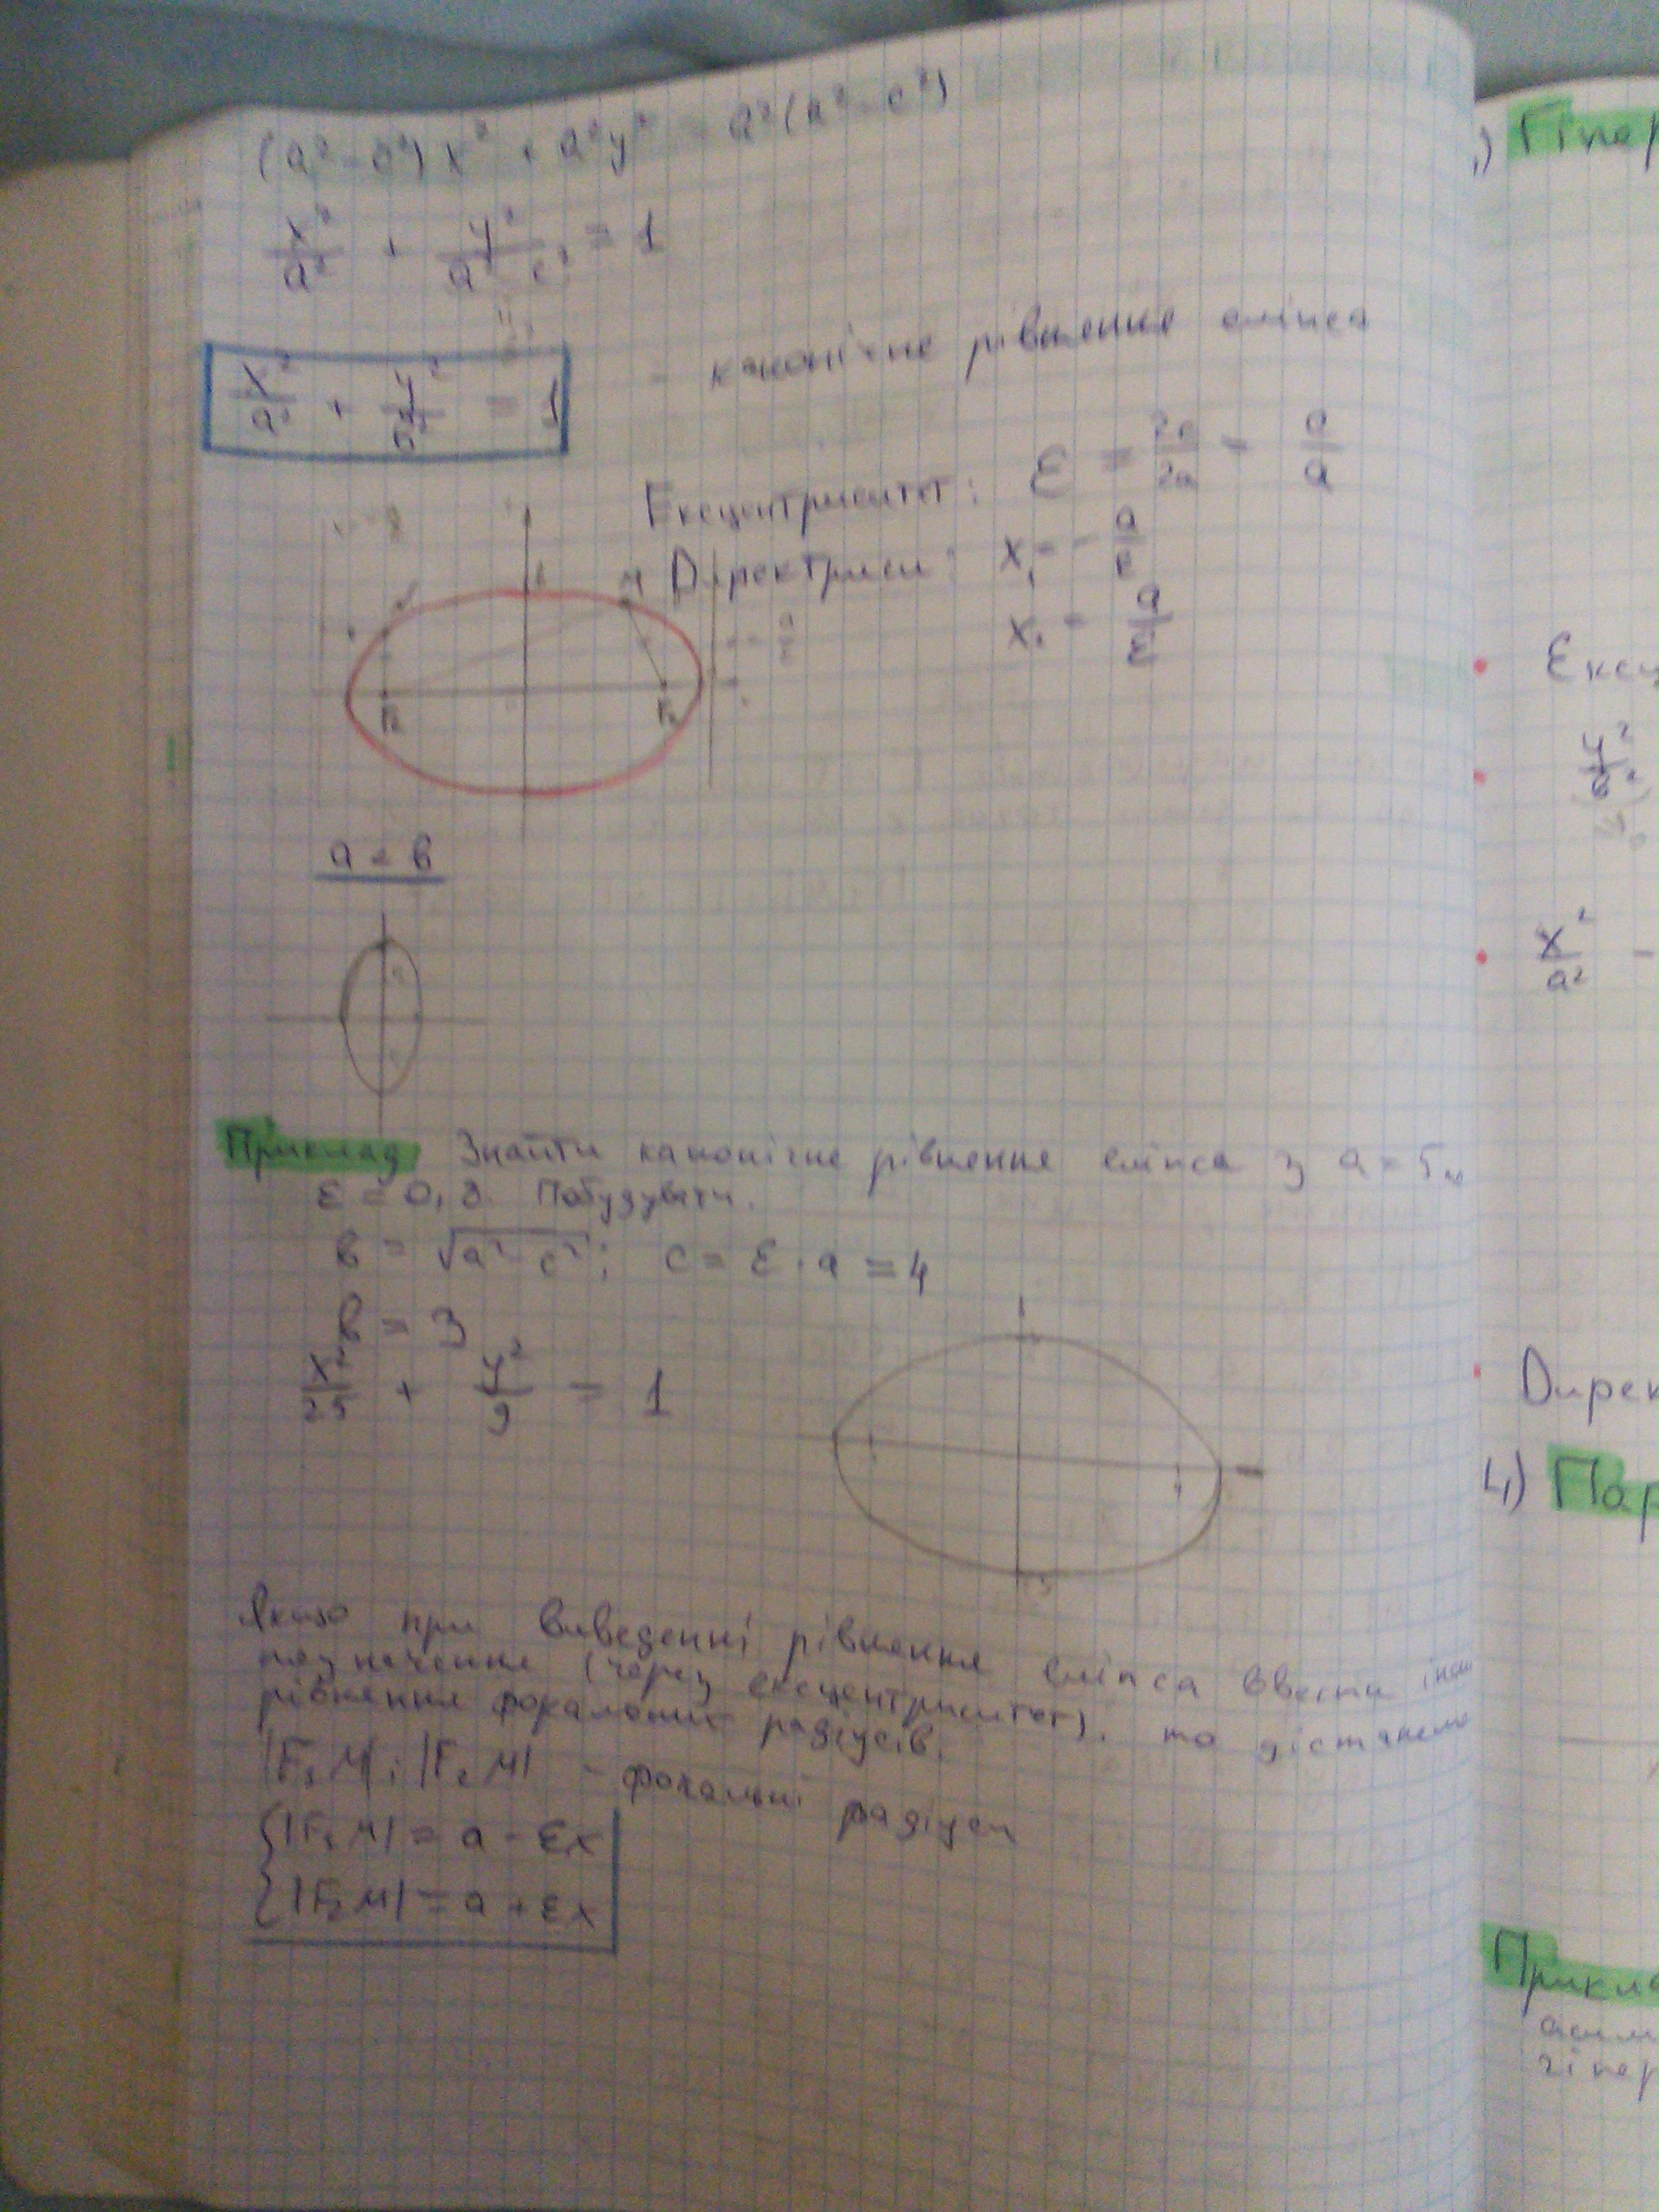 (a² - c²) x² + a²y² = a²(a² - c²)
x²/a² + y²/a² - c² = 1
x²/a² + y²/ = 1 - канонічне рівняння еліпса
Ексцентриситет: ε = 2c/2a = c/a
Директриси: x₁ = - a/ε
x₂ = a/ε
M
F₁ F₂
a < в
Приклад Знайти канонічне рівняння еліпса з a = 5
ε = 0,8. Побудувати.
в = √a² - c²; c = ε · a = 4
в = 3
x²/25 + y²/9 = 1
Якщо при виведенні рівняння еліпса ввести
позначення (через ексцентриситет), то дістанемо
рівняння фокальних радіусів.
|F₁M| ; |F₂M| - фокальні радіуси
{|F₁M| = a - εx
{|F₂M| = a + εx
Гіпер
Ексц
y²
x²/a² -
Дирек
4) Пар
Прикла
гіпер